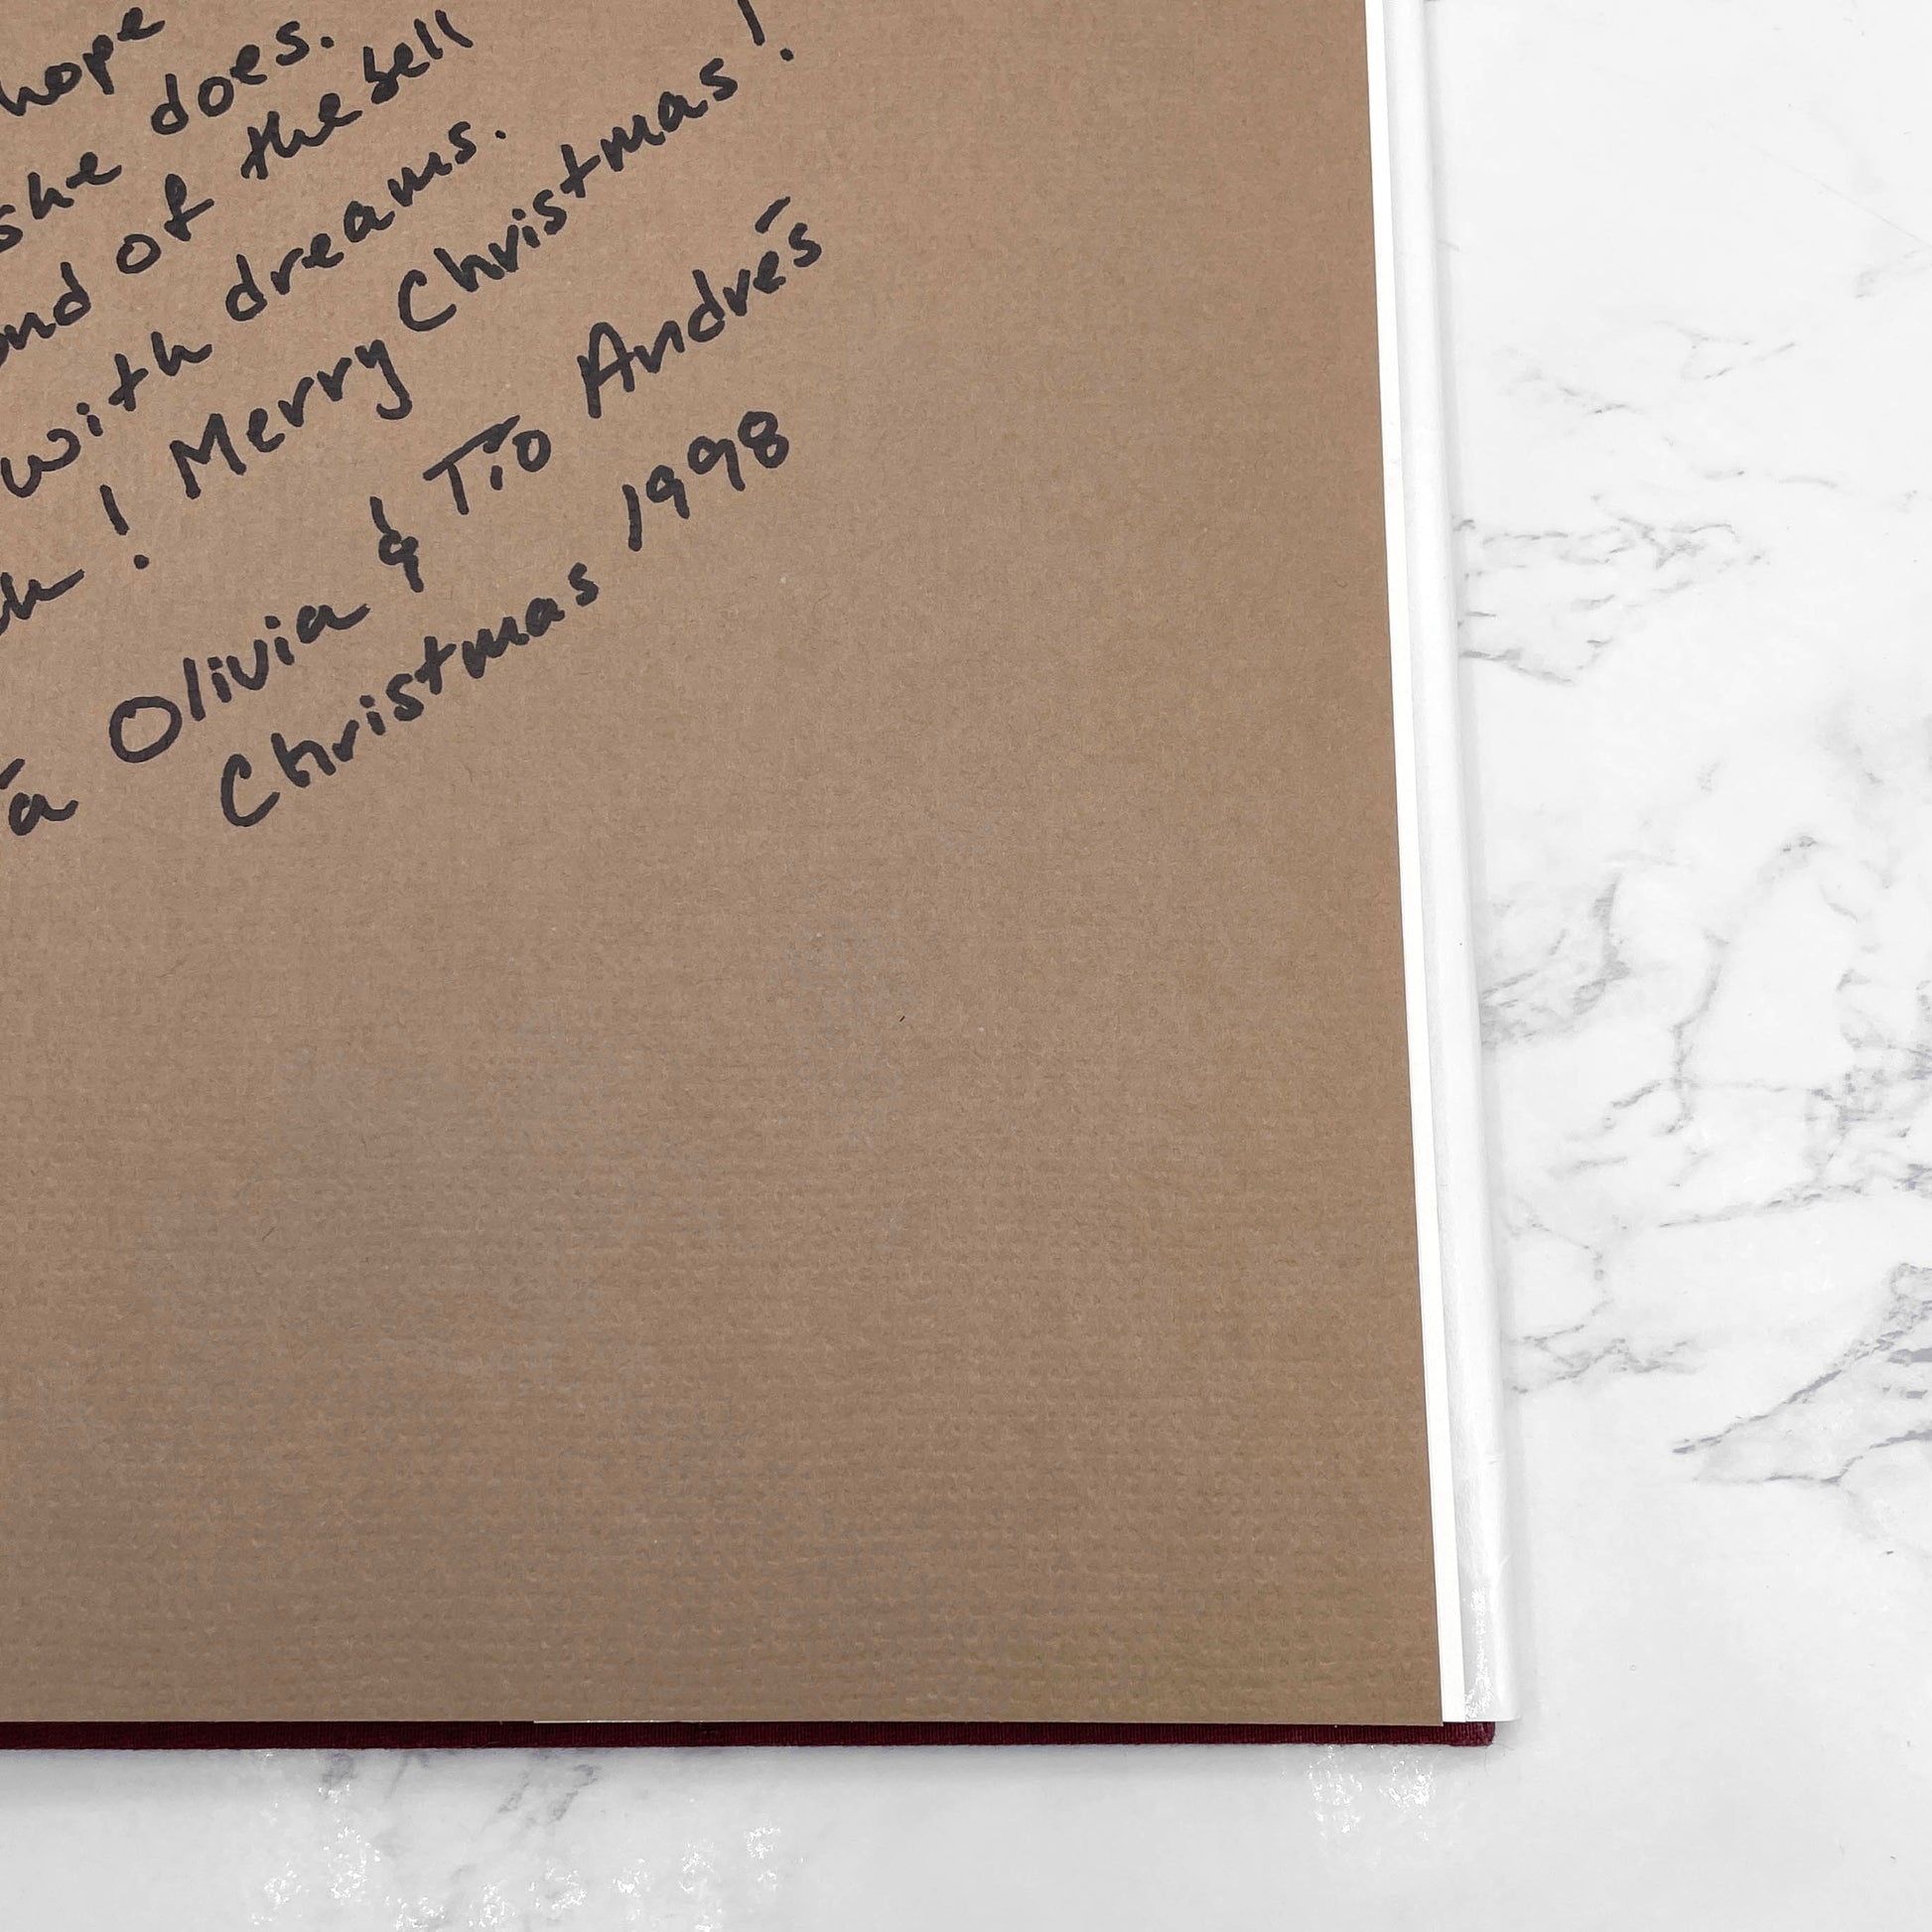 hope
she does.
of the bell
with dreams.
! Merry Christmas!
Olivia & Tío Andrés
Christmas 1998